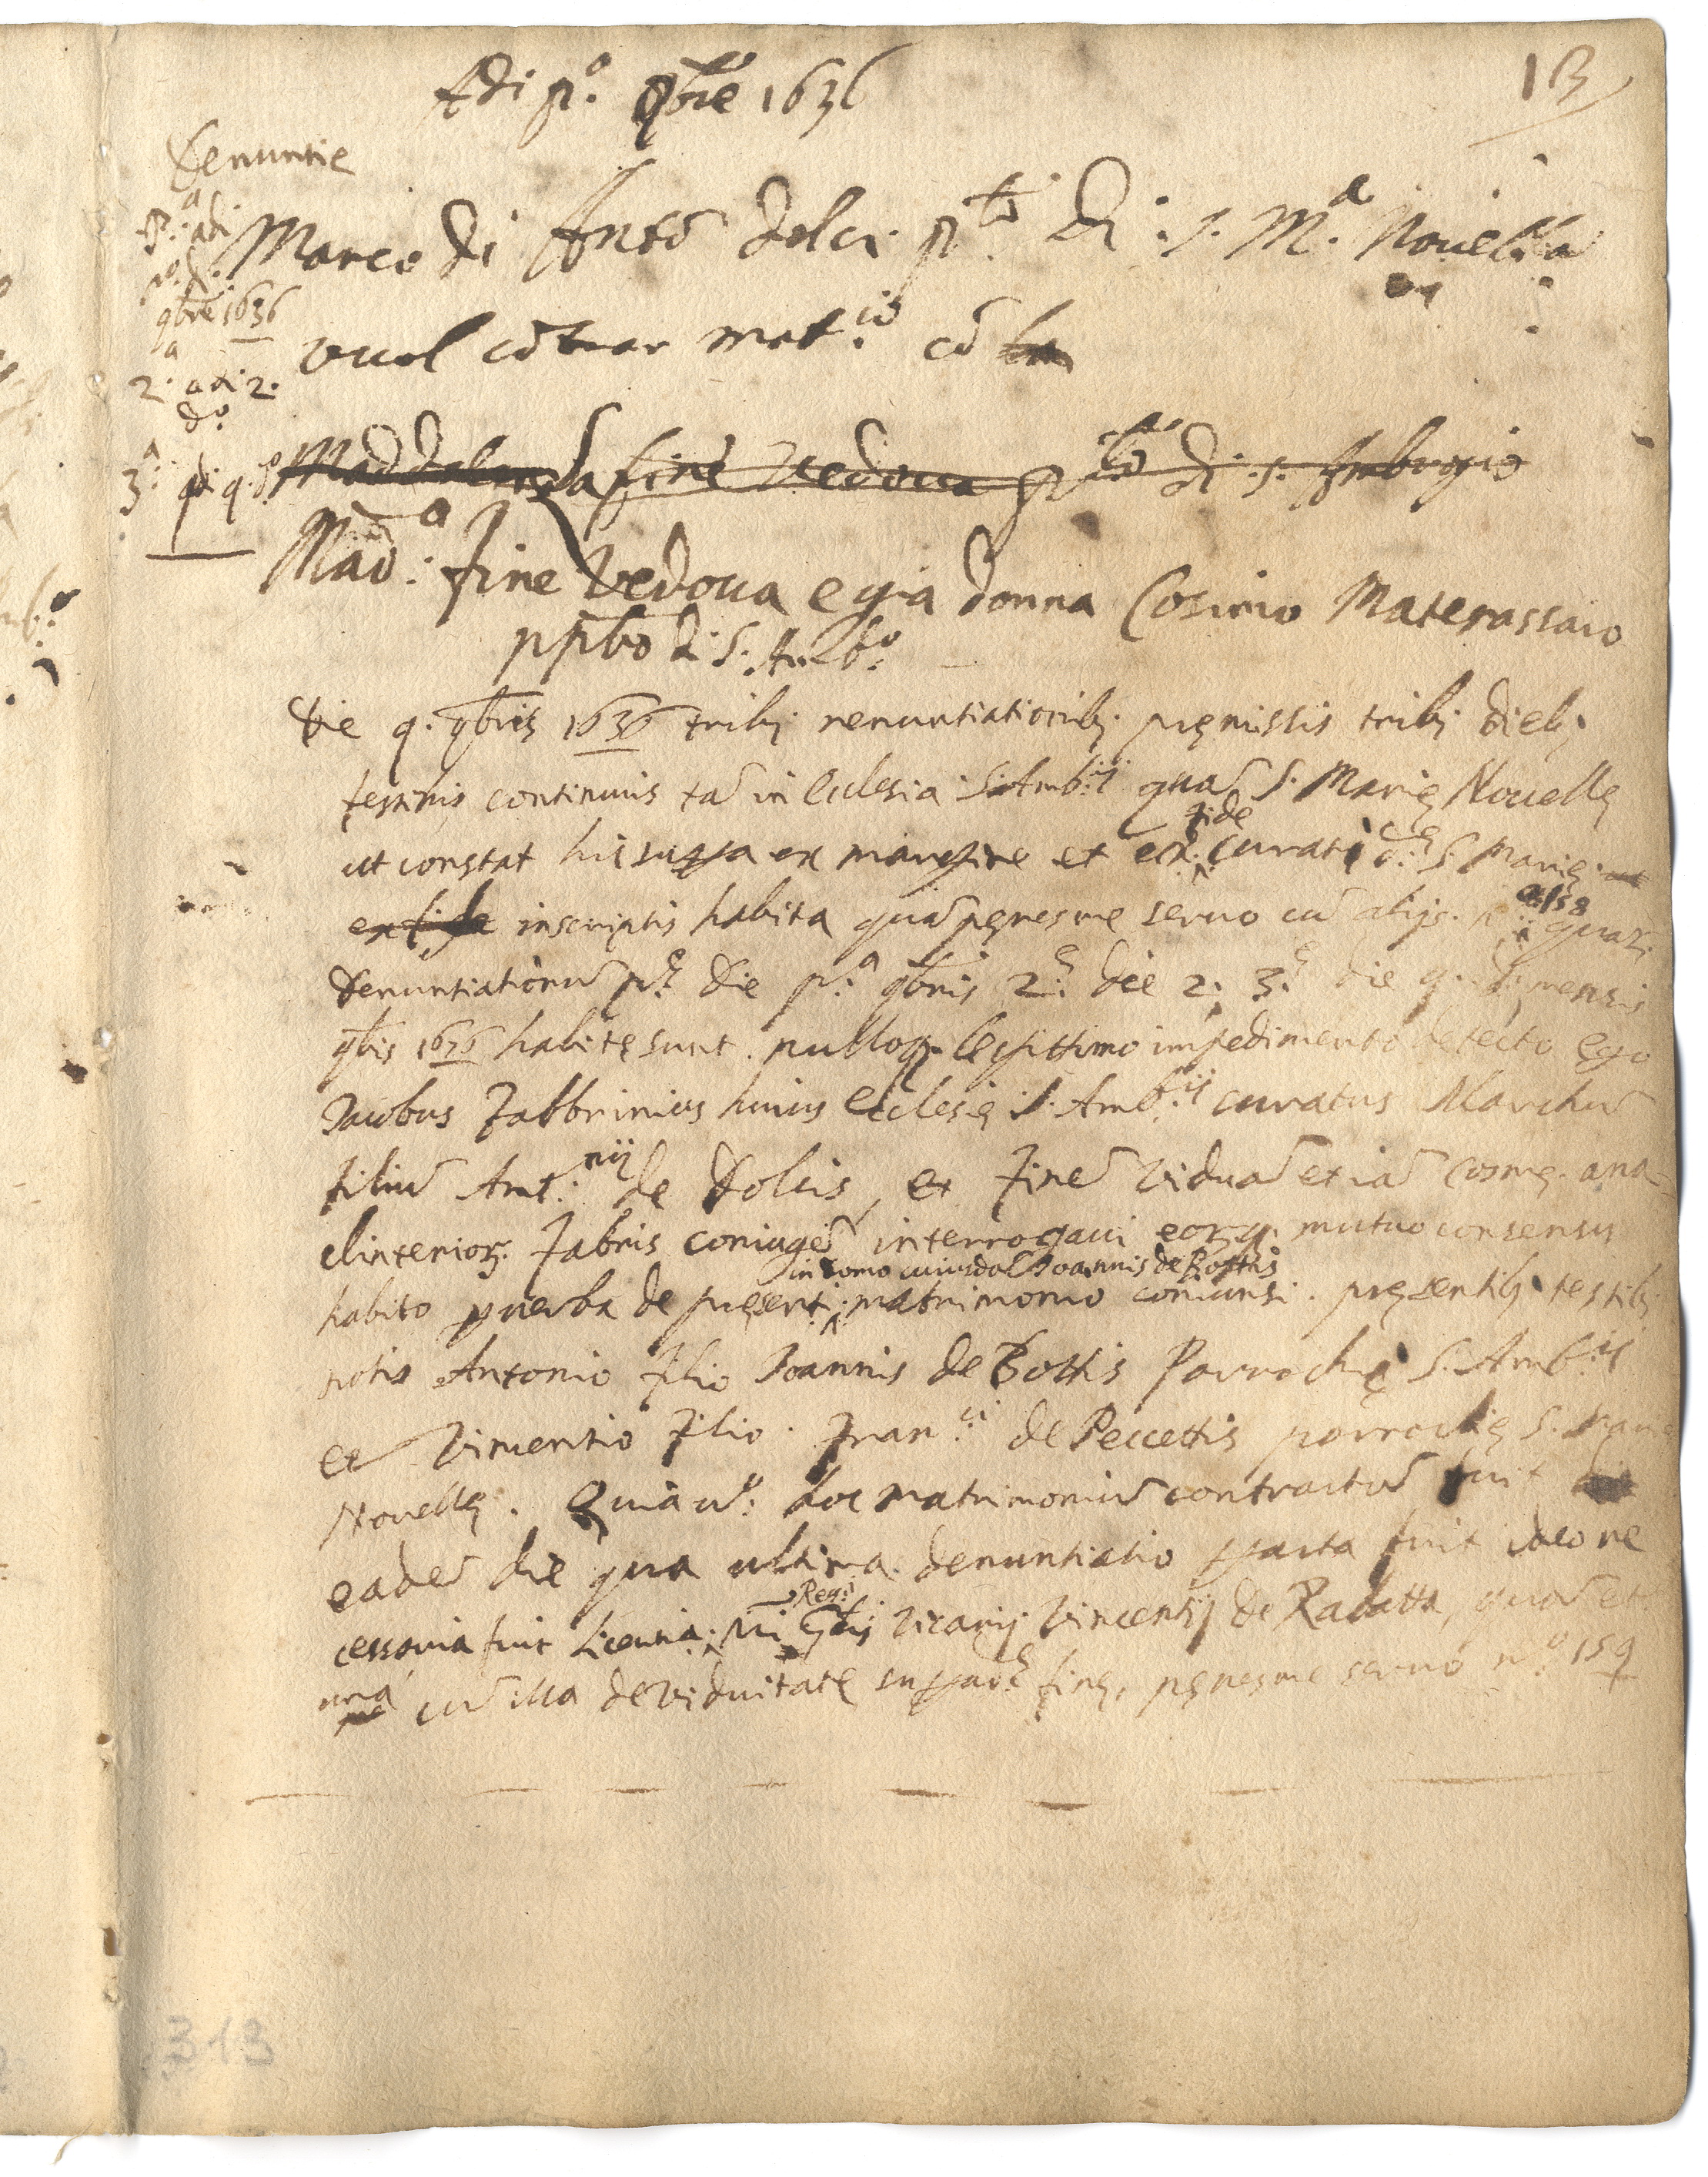 13
Adi p.º 9bre 1636
Denuntie
p.ª adi
p.º di
9bre 1636
2.ª adi 2.
d.º
3.ª adi 9. d.º
Marco di Antō dolci pˡᵒ. di S. M.ª Nouella
vuol cōtrar mat.ⁱᵒ cō la
Maddalena Fine Vedoua pˡᵒ di S. Ambrogio
Mad.ª fine vedoua e gia donna Cosimo Materassaio
ppˡo di S. Amb.º
Die 9. 9bris 1636 tribȷ renuntiationibȷ pręmissis tribȷ diebȷ
festiuis continuis tā in Ecclesia S. Amb.ⁱʲ quā S. Marię Nouellę
ut constat hic supra ex margine et ex fide curati d.ę S. Marię
ex fide inscriptis habita quā pęnes me seruo cū alijs n.º 158 quar.
Denuntiationū p.ę die p.ª 9bris 2.ę die 2. 3.ę die 9. d. mensis
9bris 1636 habitę sunt. nulloq. legittimo impedimento detecto ego
Jacobus Fabbrinius huius Ecclesię S. Amb.ⁱʲ curatus Marchū
filiū Ant.ⁿⁱʲ de Dolcis, et Finē viduā et iā Cosmę ana-
clinterior. Fabris coniugē interrogaui eorq. mutuo consensu
habito p uerba de pręsenti in domo cuiusdā Joannis de Bottis matrimonio coniunsi. pręsentibȷ testibȷ
notis Antonio filio Joannis de Bottis Parrochię S. Amb.ⁱʲ
et Vincentio filio Fran.ᶜⁱ de Peccettis parrochię S. Marię
Nouellę. Quia u.º hoc matrimoniū contractū fuit
eadē die qua ultima denuntiatio facta fuit ideo ne
cessaria fuit licentia Reu.ⁱ Vicarij Vincentij de Rabatta, quā et
una cū illa de viduitate suprad.ę finę, pęnes me seruo n.º 159
313